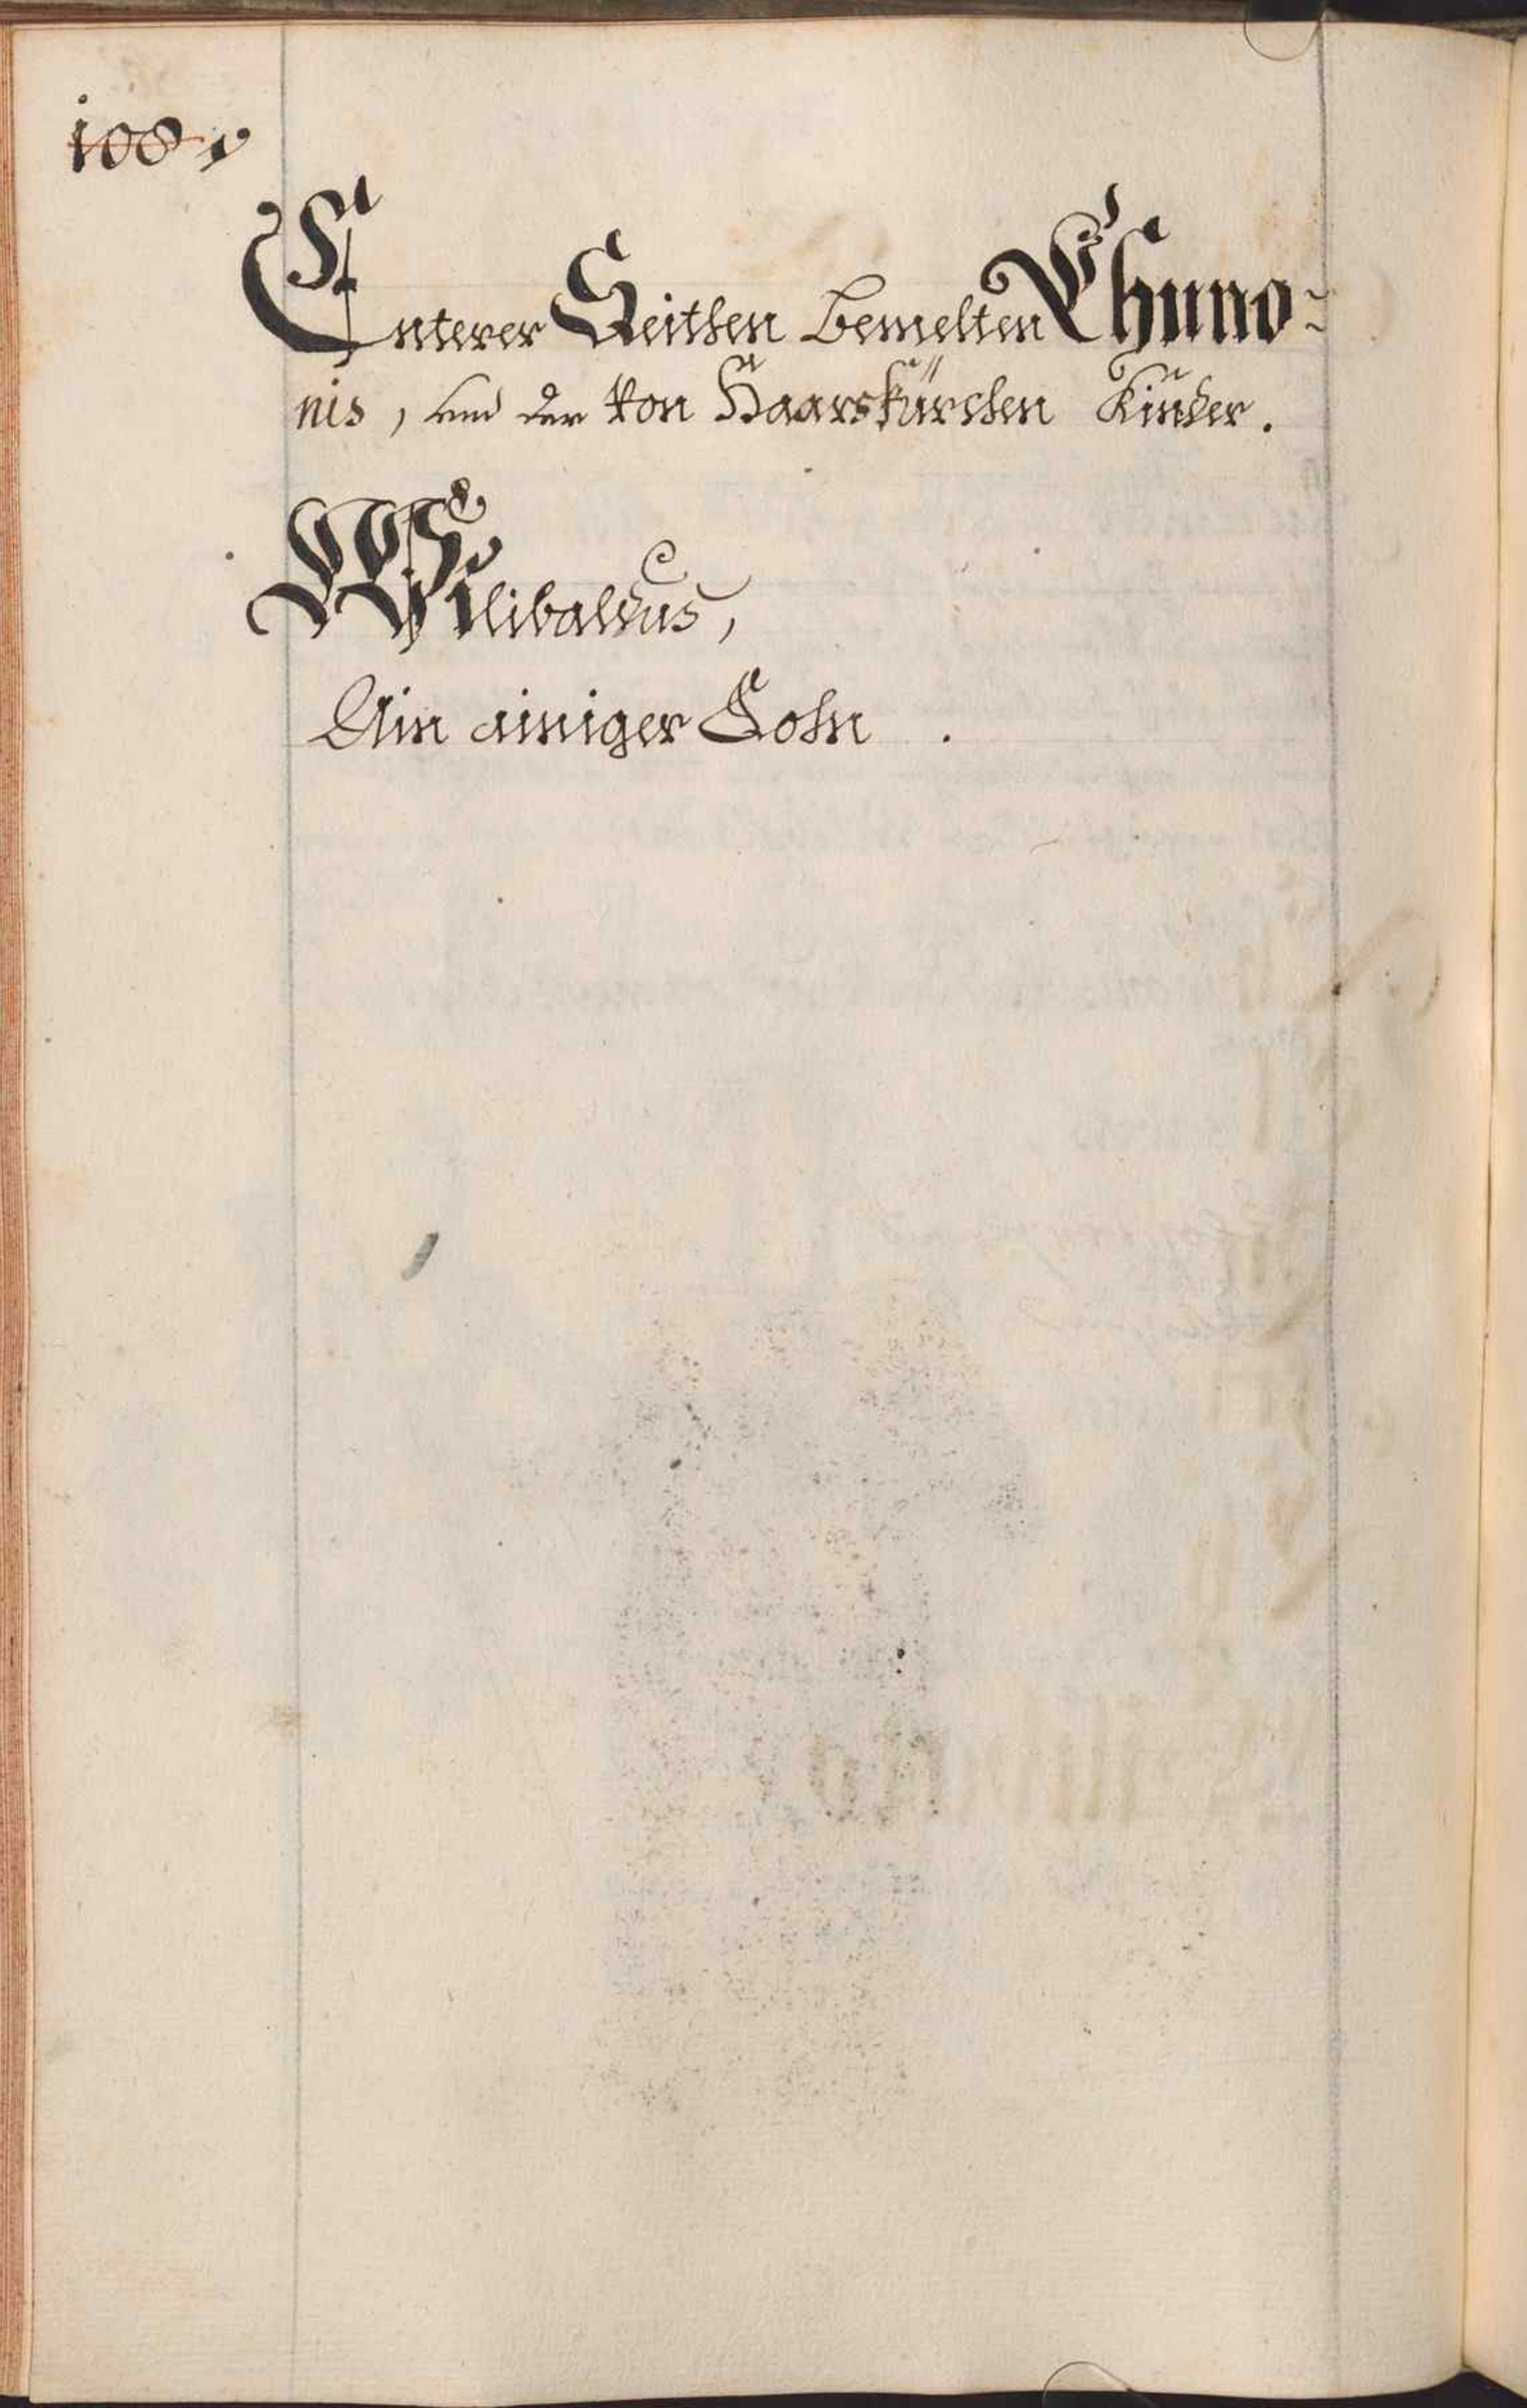 108.
Enterer Seithen bemelten Chuno-
nis, und der von Haarskürchen Kinder.
Wilibaldus,
Ain ainiger Sohn.